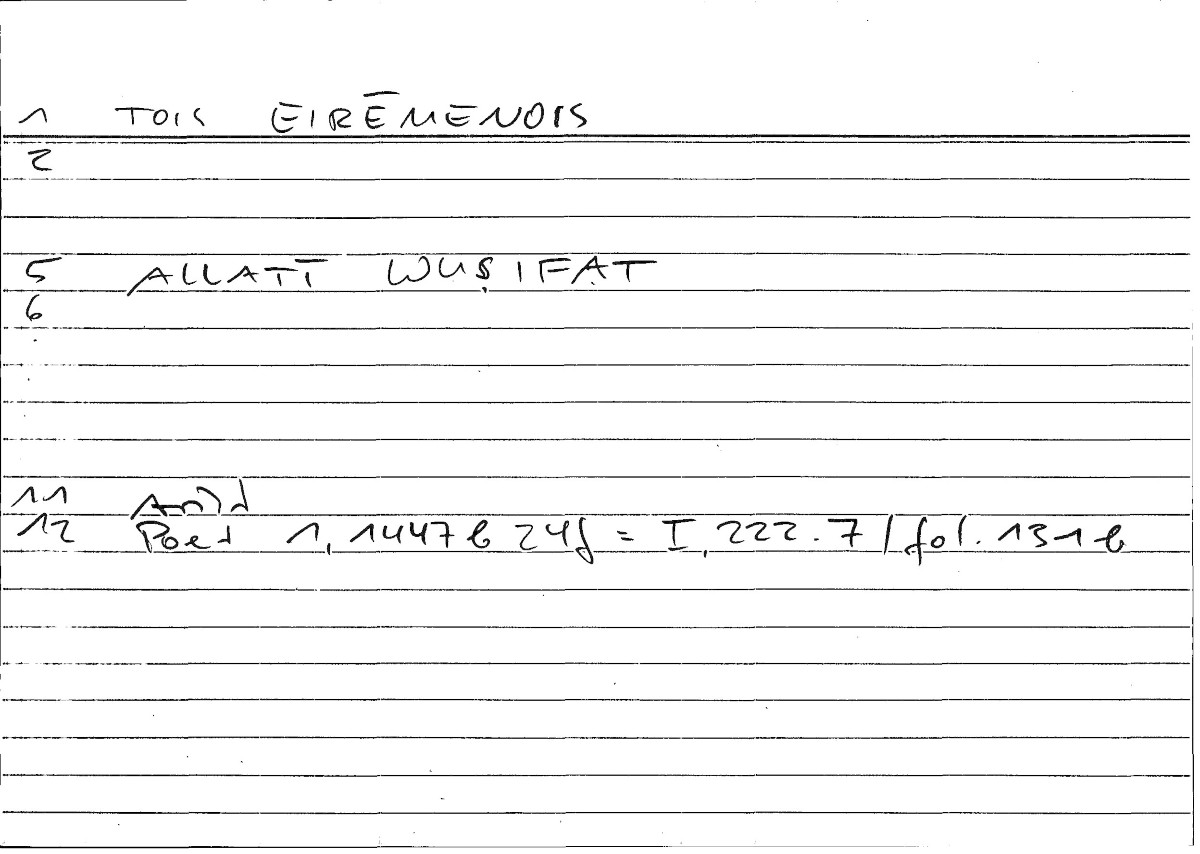 1 TOIS EIRĒMENOIS
2
5 ALLATĪ WUṢIFAT
6
11
12 Poet 1, 1447 b 24f = I, 222.7 / fol. 131 b